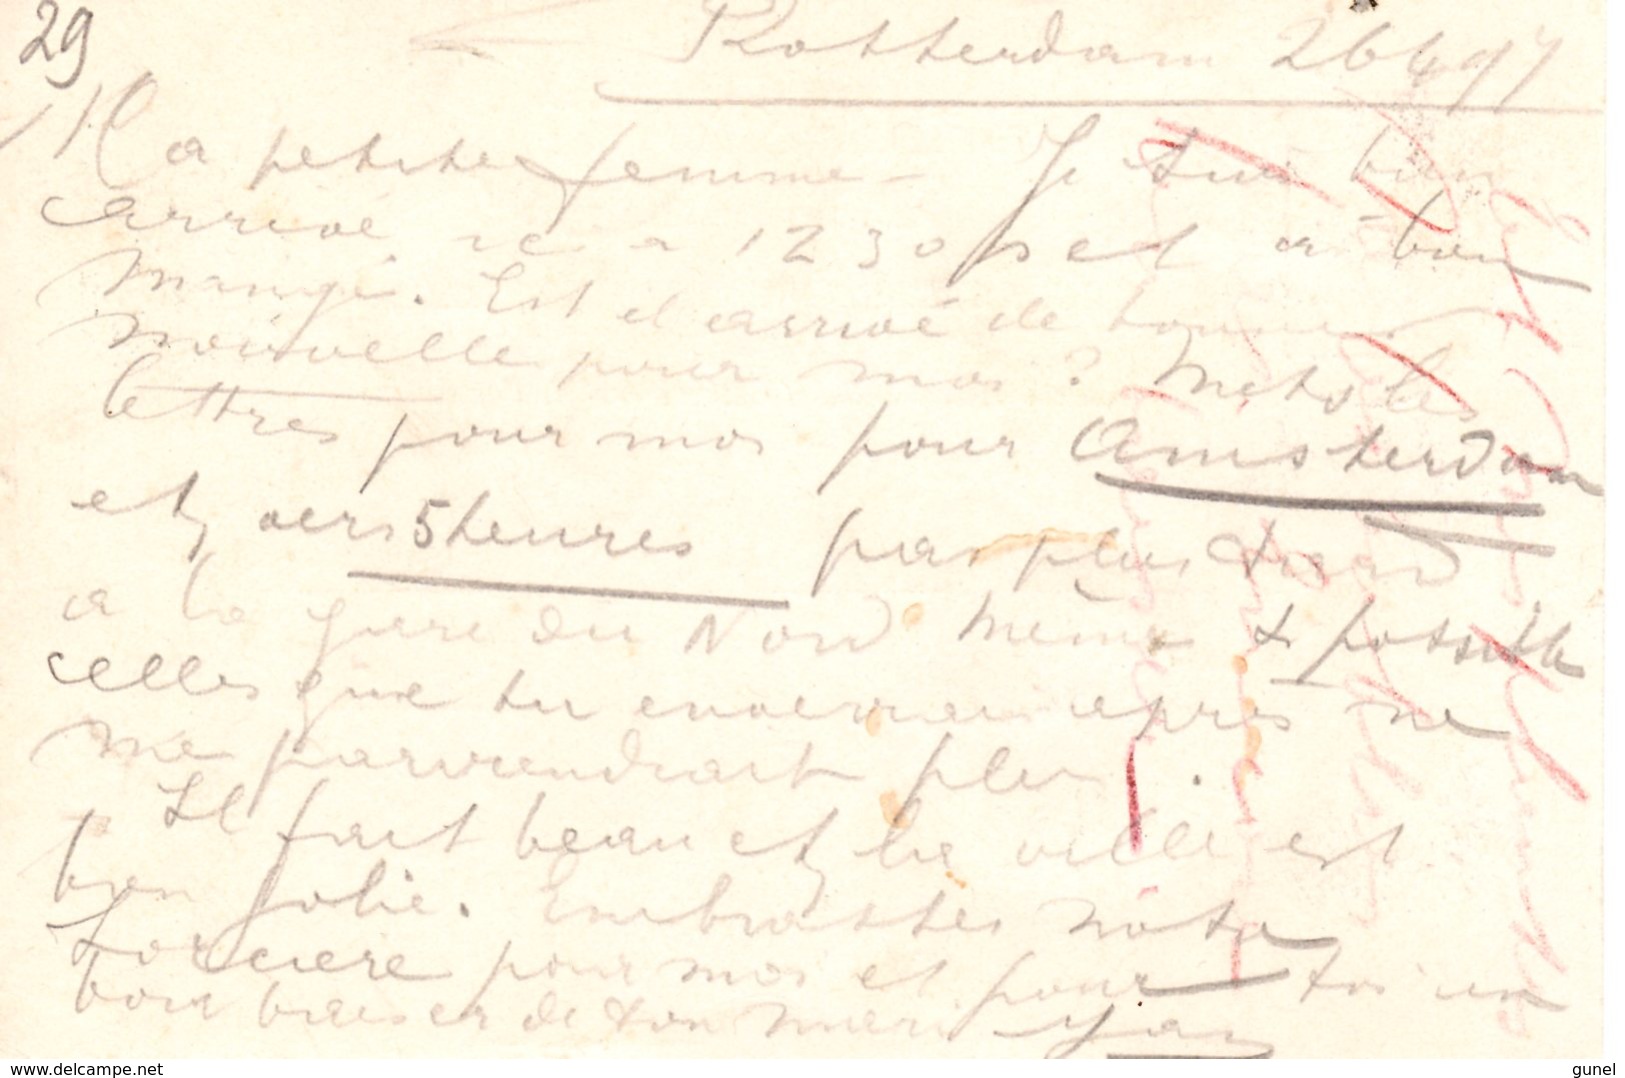 29
Rotterdam 26 4 97
Ma petite femme - Je suis bien
arrivé ici a 12 30 et a bien
mangé. Est il arrivé de bonnes
nouvelle pour moi? Mets les
lettres pour moi pour Amsterdam
et vers 5 heures pas plus tard
a la gare du Nord même si possible
celles que tu enverrai apres ne
me parviendrait plus.
Il fait beau et la ville est
bien jolie. Embrasses nota
sorciere pour moi et pour toi un
bon baiser de ton mari
www.delcampe.net
gunel